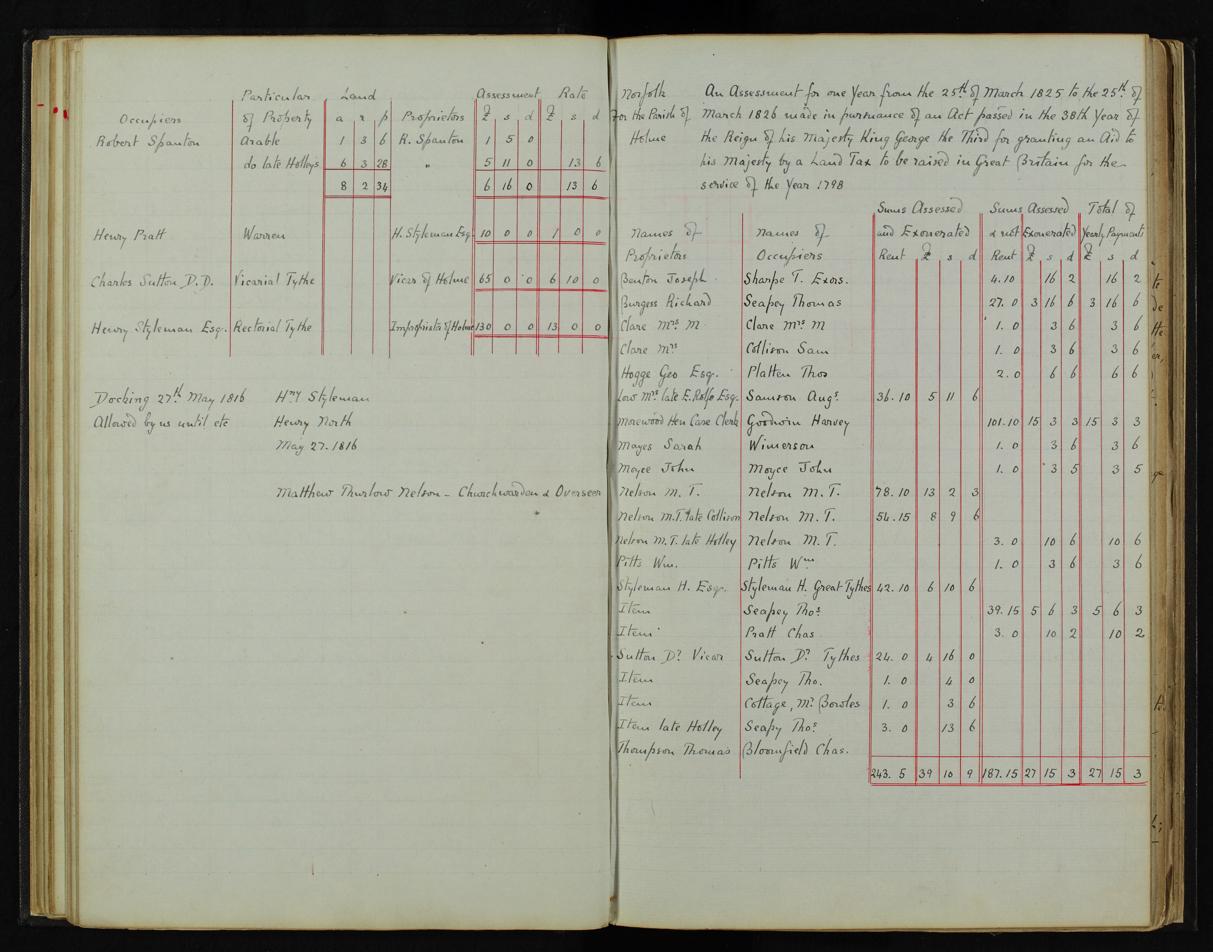 Particular Land Assessment Rate
Occupiers of Property a r p Proprietors £ s d £ s d
Robert Spanton Arable 1 3 6 R. Spanton 1 5 0
do late Holleys 6 3 28 " 5 11 0 13 6
8 2 34 6 16 0 13 6
Henry Pratt Warren H. Styleman Esq. 10 0 0 1 0 0
Charles Sutton D.D. Vicarial Tythe Vicar of Holme 65 0 0 6 10 0
Henry Styleman Esq. Rectorial Tythe Impropriator of Holme 130 0 0 13 0 0
Docking 27th May 1816 Hny Styleman
Allowed by us until etc Henry North
May 27. 1816
Matthew Thurlow Nelson - Churchwarden & Overseer
Norfolk An Assessment for one Year from the 25th of March 1825 to the 25th of
For the Parish of March 1826 made in pursuance of an Act passed in the 38th Year of
Holme the Reign of his Majesty King George the Third for granting an Aid to
his Majesty by a Land Tax to be raised in Great Britain for the
service of the Year 1798
Sums Assessed Sums Assessed Total of
Names of Names of and Exonerated & not Exonerated Yearly Payments
Proprietors Occupiers Rent £ s d Rent £ s d £ s d
Benton Joseph Sharpe T. Exors. 4.10 16 2 16 2
Burgess Richard Seapey Thomas 27. 0 3 16 6 3 16 6
Clare Mrs M Clare Mrs M 1. 0 3 6 3 6
Clare Mrs Collison Sam 1. 0 3 6 3 6
Hogge Geo Esq. Platten Thos 2. 0 6 6 6 6
Low Mrs late E. Rolfe Esq. Samson Augs. 36. 10 5 11 6
Morewood Hen Case Clerk Goodwin Harvey 101. 10 15 3 3 15 3 3
Mayes Sarah Wimerson 1. 0 3 6 3 6
Moyce John Moyce John 1. 0 3 5 3 5
Nelson M. T. Nelson M. T. 78. 10 13 2 3
Nelson M.T. late Collison Nelson M. T. 54. 15 8 9 6
Nelson M.T. late Holley Nelson M. T. 3. 0 10 6 10 6
Pitts Wm. Pitts Wm 1. 0 3 6 3 6
Styleman H. Esq. Styleman H. Great Tythes 42. 10 6 10 6
Item Seapey Thos. 39. 15 5 6 3 5 6 3
Item Pratt Chas 3. 0 10 2 10 2
Sutton Dr. Vicar Sutton Dr. Tythes 24. 0 4 16 0
Item Seapey Tho. 1. 0 4 0
Item Cottage, Mr. Bowles 1. 0 3 6
Item late Holley Seapy Thos. 3. 0 13 6
Thompson Thomas Bloomfield Chas.
243. 5 39 10 9 187. 15 27 15 3 27 15 3